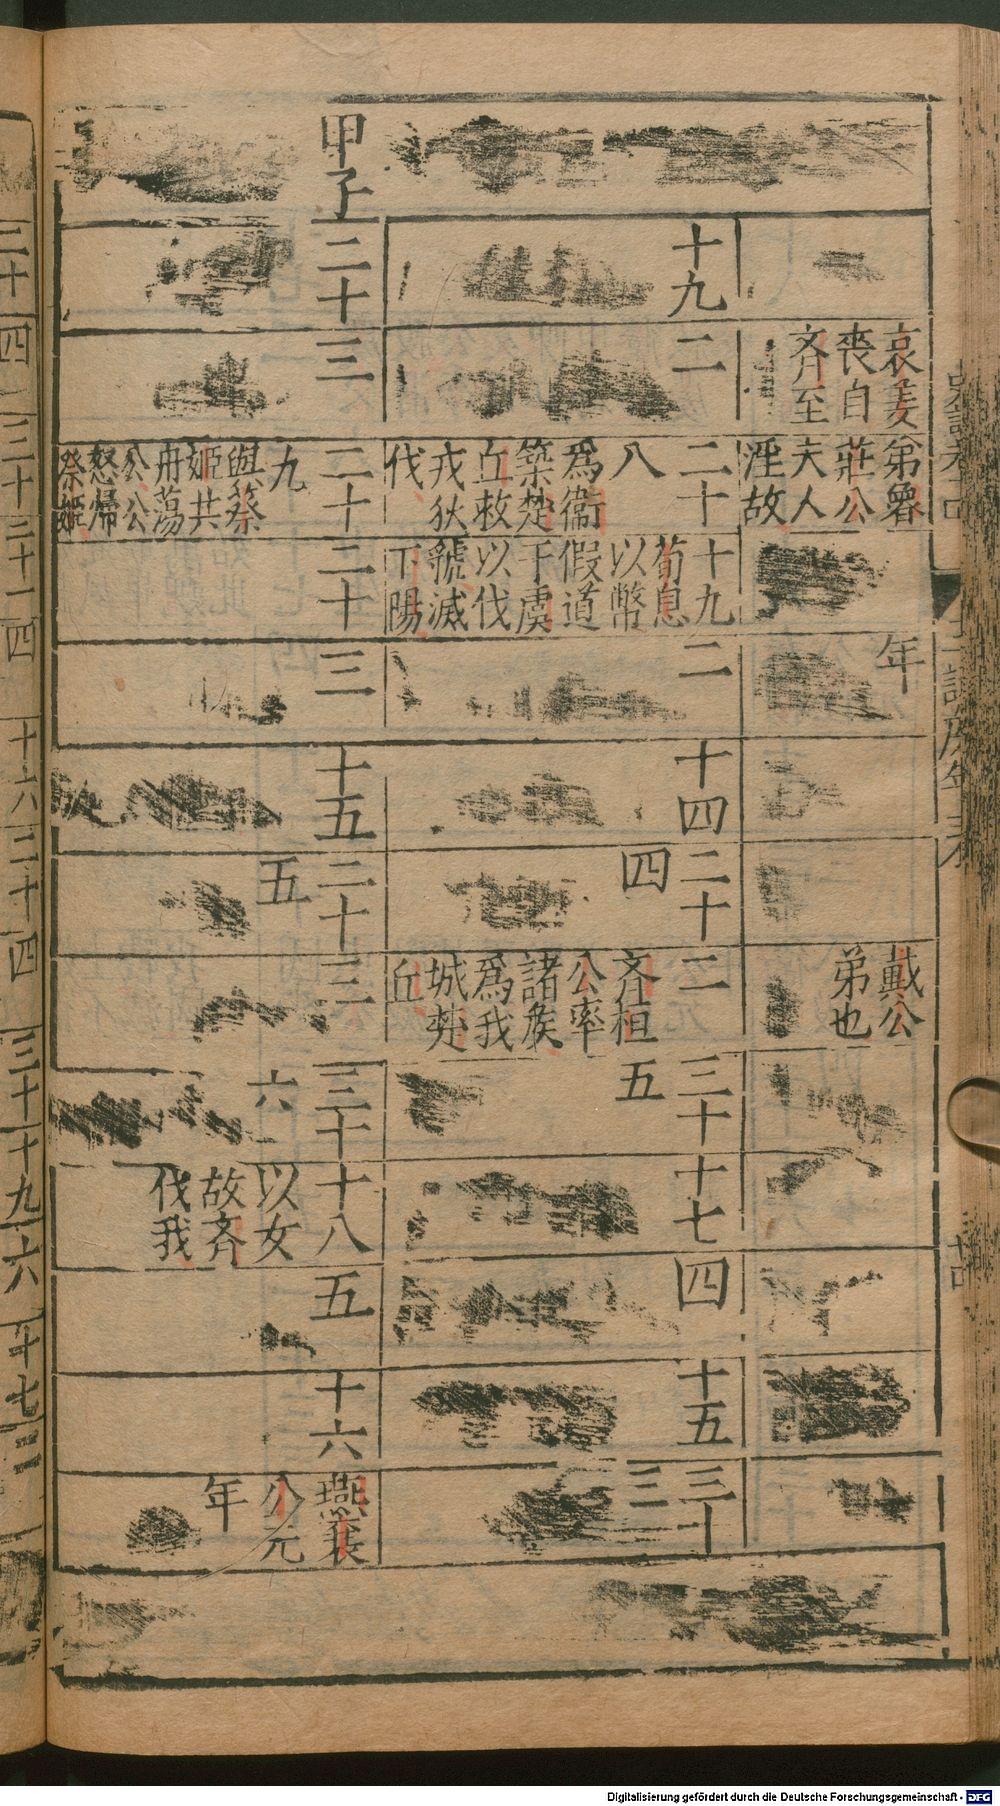 哀姜
喪自
齊至
弟魯
莊公
夫人
淫故
年
戴公
弟也
十九
二
二十
八
爲衞
築楚
丘救
戎狄
伐
十九
荀息
以幣
假道
于虞
以伐
虢滅
下陽
二
十四
二十
四
二
齊桓
公率
諸矦
爲我
城楚
丘
三十
五
十七
四
十五
三十
三
甲子
二十
三
二十
九
與蔡
姬共
舟蕩
公公
怒歸
蔡姬
二十
三
十五
二十
五
三
三十
六
十八
以女
故齊
伐我
五
十六
燕襄
公元
年
三十
四
三十
二十一
四
十六
二十
四
三十
十九
六
十七
Digitalisierung gefördert durch die Deutsche Forschungsgemeinschaft - DFG